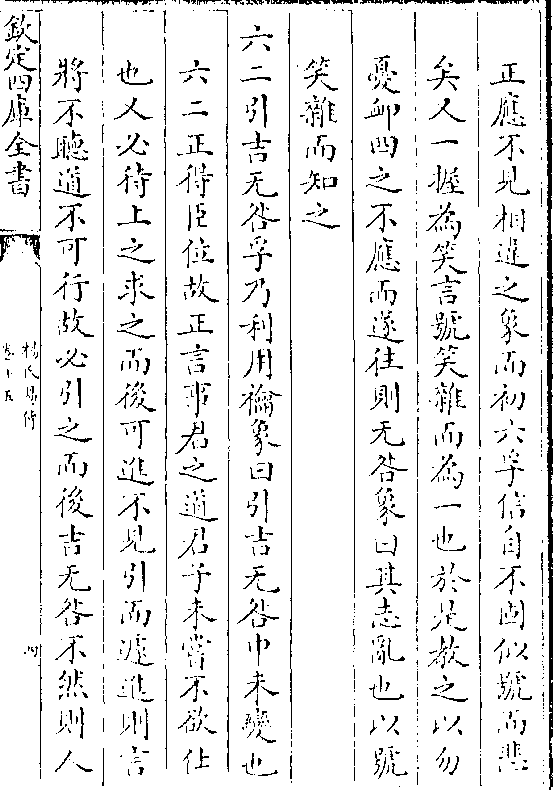 正應不見相違之象而初六孚信自不固似號而悲
矣人一握為笑言號笑雜而為一也於是教之以勿
憂卹四之不應而遂往則无咎象曰其志亂也以號
笑雜而知之
六二引吉无咎孚乃利用禴象曰引吉无咎中未變也
六二正得臣位故正言事君之道君子未嘗不欲仕
也又必待上之求之而後可進不見引而遽進則言
將不聽道不可行故必引之而後吉无咎不然則人
欽定四庫全書
楊氏易傳
卷十五
四